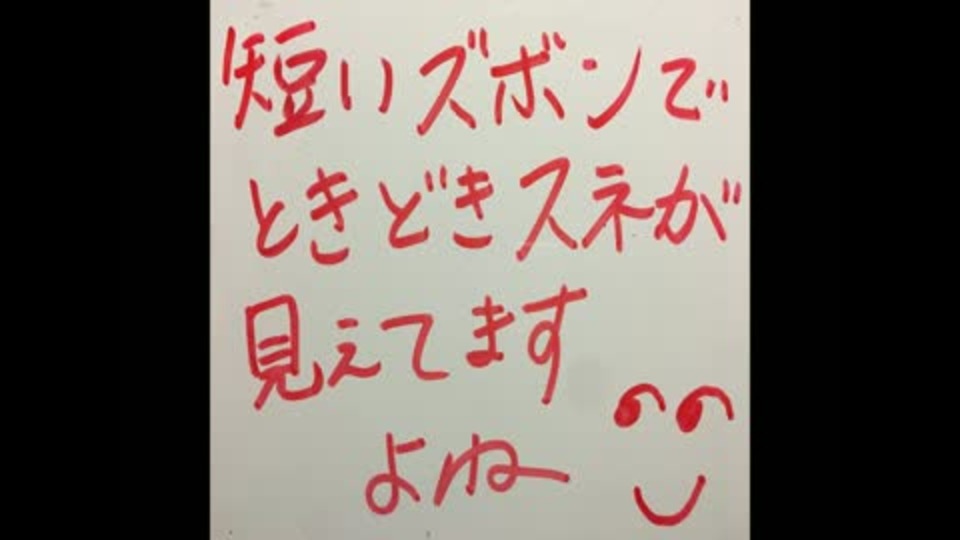 短いズボンで
ときどきスネが
見えてます
よね